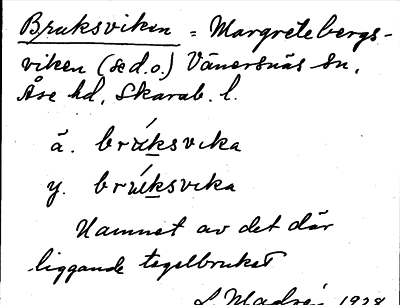 Bruksviken = Margretebergs-
viken (se d.o.) Vänersnäs sn,
Åse hd, Skarab. l.
ä. brúksvika
y. brúksvika
Namnet av det där
liggande tegelbruket
1928